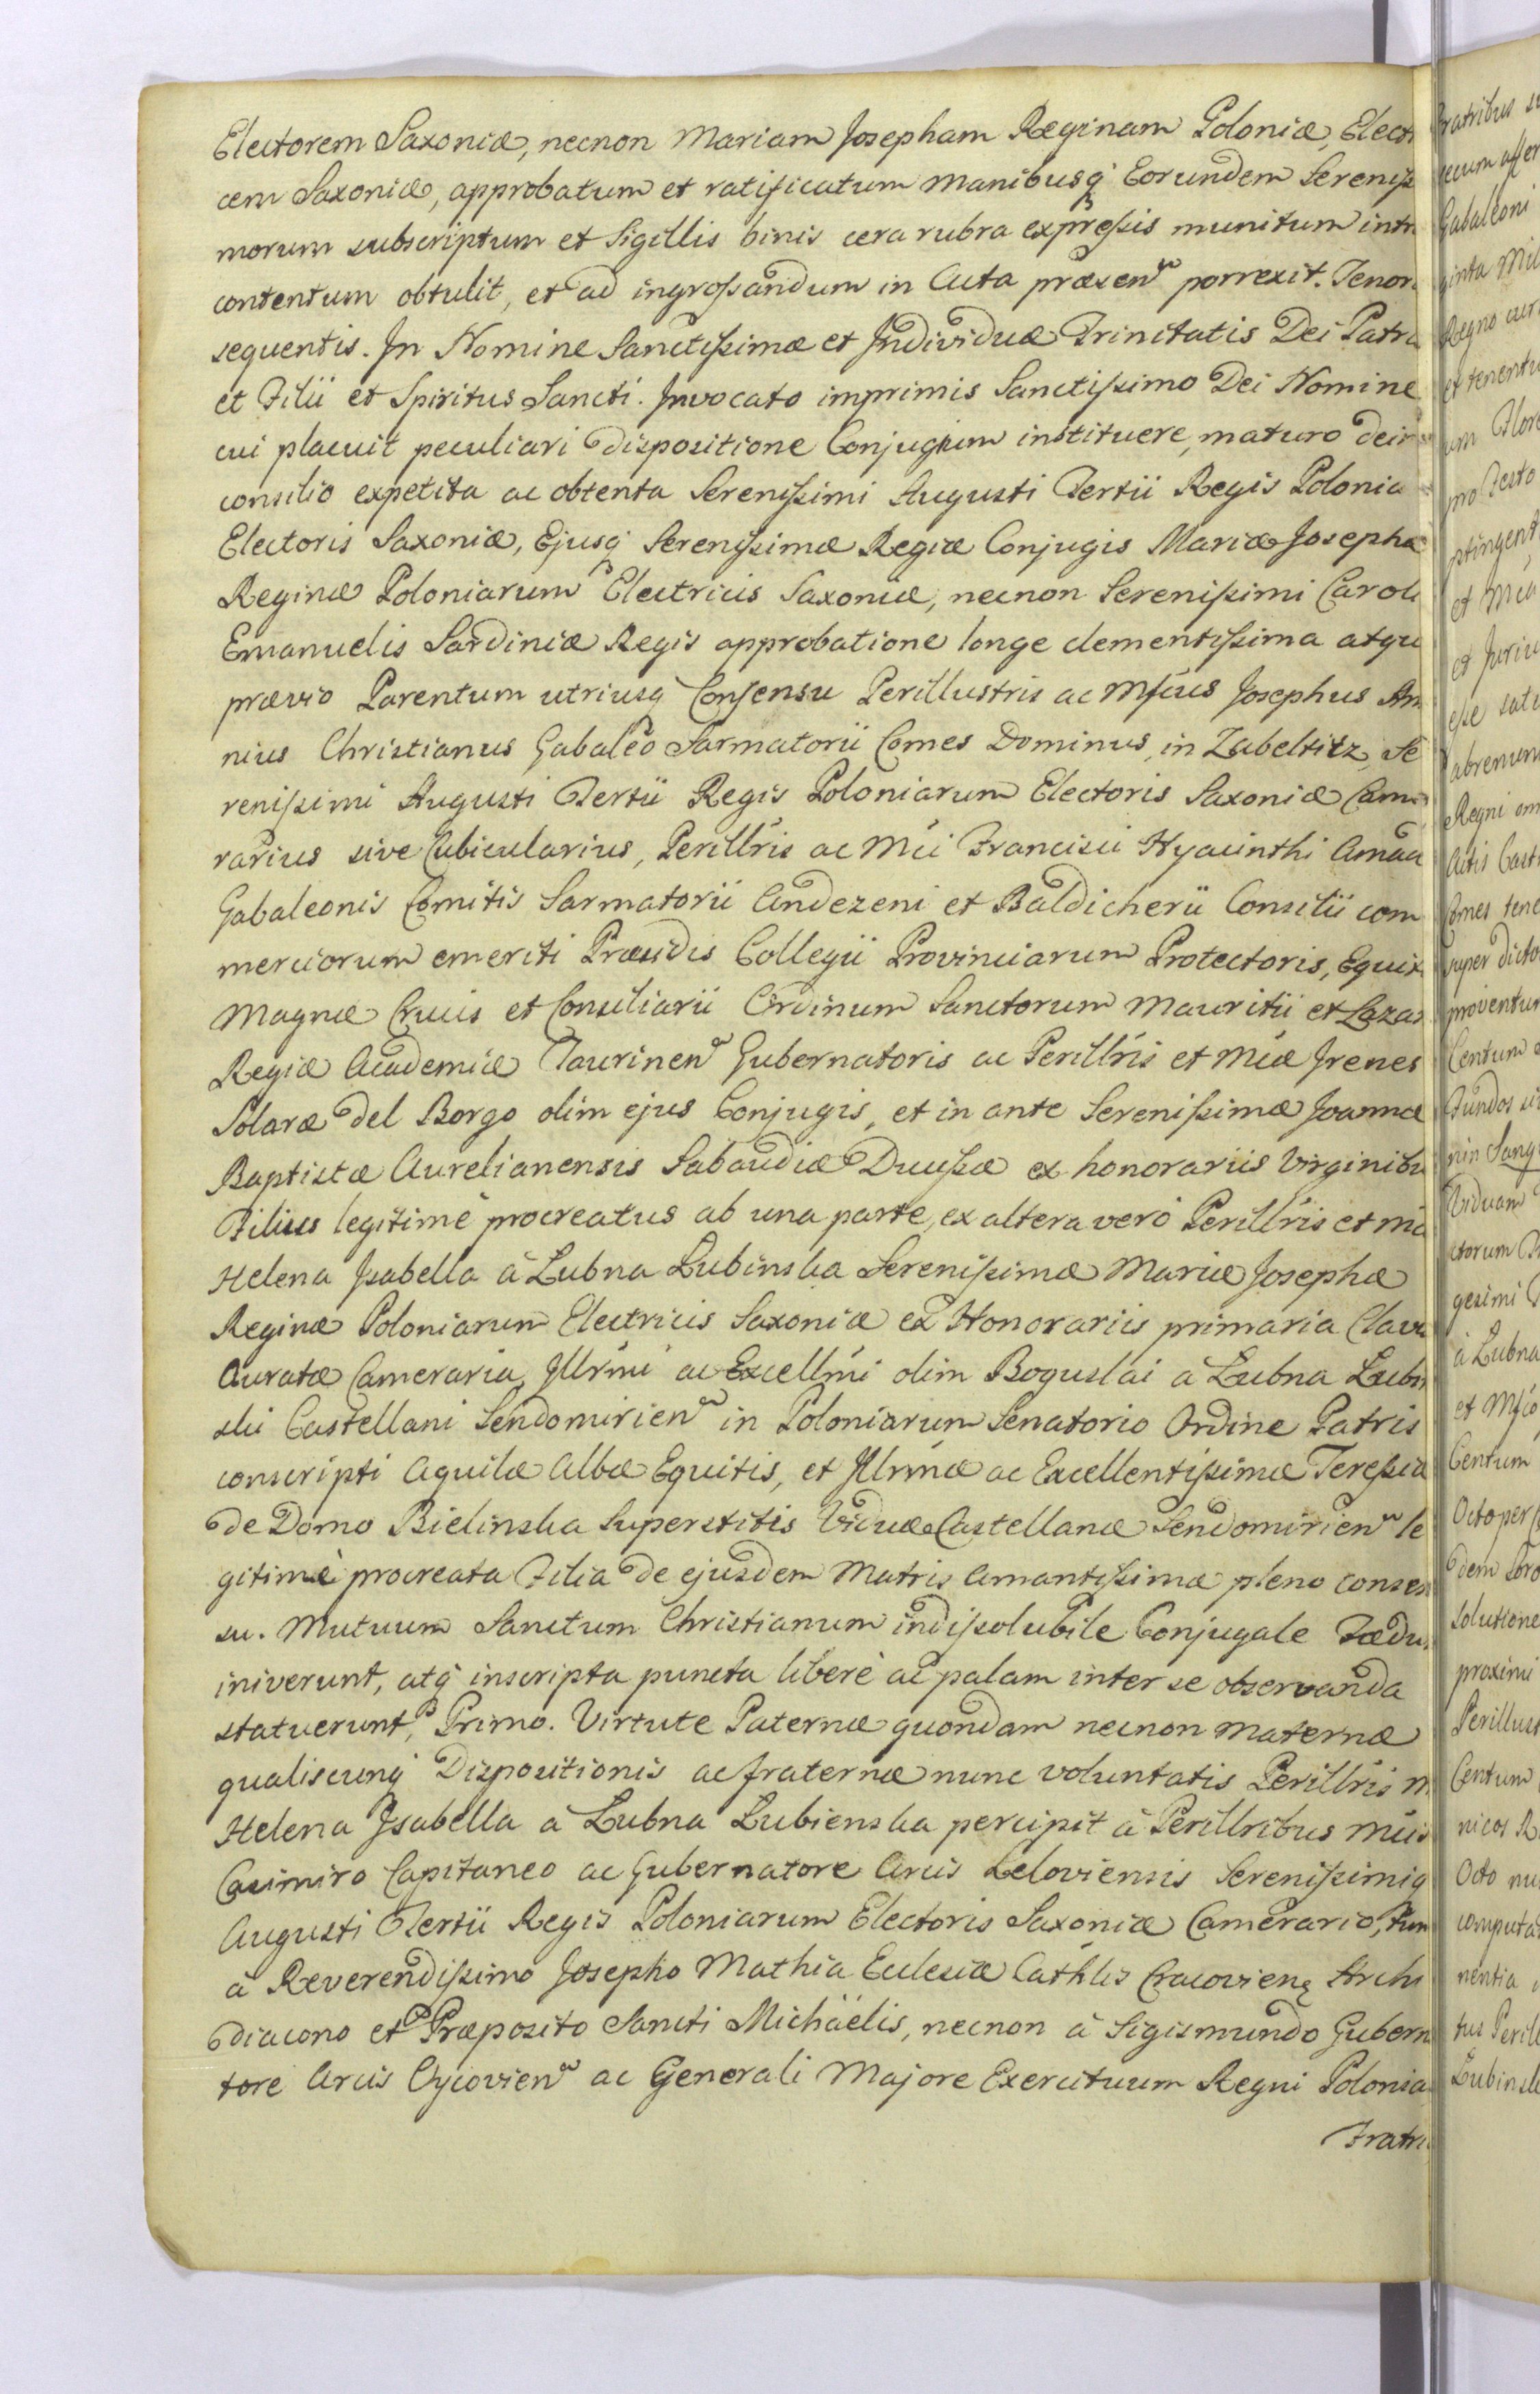 Electorem Saxoniæ, necnon Mariam Josepham Reginam Poloniæ, Elect
cem Saxoniæ, approbatum et ratificatum manibusq Eorundem Sereniss
morum subscriptum et Sigillis binis cera rubra expressis munitum intr
contentum obtulit, et ad ingrossandum in Acta præsen porrexit. Tenor
sequentis. In Nomine Sanctissimæ et Individuæ Trinitatis Dei Patri
et Filii et Spiritus Sancti. Invocato imprimis Sanctissimo Dei Nomine
cui placuit peculiari dispositione Conjugium instituere, maturo dein
consilio expetita ac obtenta Serenissimi Augusti Tertii Regis Polonia
Electoris Saxoniæ, Ejusq Serenissimæ Regiæ Conjugis Mariæ Josepha
Reginæ Poloniarum Electricis Saxoniæ, necnon Serenissimi Caroli
Emanuelis Sardiniæ Regis approbatione longe clementissima atqu
prævio Parentum utriusq Consensu Perillustris ac Mficus Josephus An
nius Christianus Gabaleo Sarmatorii Comes Dominus in Zabeltitz, Se
renissimi Augusti Tertii Regis Poloniarum Electoris Saxoniæ Came
rarius sive Cubicularius, Perillris ac Mci Francisci Hyacinthi Amad
Gabaleonis Comitis Sarmatorii Andezeni et Baldicherii Consilii com
merciorum emeriti Præsidis Collegii Provinciarum Protectoris, Equit
Magnæ Crucis et Consiliarii Ordinum Sanctorum Mauritii et Lazar
Regiæ Academiæ Taurinen Gubernatoris ac Perillris et Mcæ Irenes
Solaræ del Borgo olim ejus Conjugis, et in ante Serenissimæ Joannæ
Baptistæ Aurelianensis Sabaudiæ Ducissæ ex honorariis Virginibu
Filius legitimè procreatus ab una parte, ex altera verò Perillris et Mca
Helena Isabella à Lubna Lubinska Serenissimæ Mariæ Josephæ
Reginæ Poloniarum Electricis Saxoniæ ex Honorariis primaria Clavis
Auratæ Cameraria, Illrmi ac Excellmi olim Boguslai à Lubna Lubin
ski Castellani Sendomirien in Poloniarum Senatorio Ordine Patris
conscripti Aquilæ Albæ Equitis, et Illrmæ ac Excellentissimæ Teressia
de Domo Bielinska Superstitis Viduæ Castellanæ Sendomirien le
gitimè procreata Filia de ejusdem Matris Amantissimæ pleno consen
su. Mutuum Sanctum Christianum indissolubile Conjugale Fœdus
iniverunt, atq inscripta puncta liberè ac palam inter se observanda
statuerunt, Primo. Virtute Paternæ quondam necnon Maternæ
qualiscunq Dispositionis ac fraternæ nunc voluntatis Perillris M
Helena Isabella à Lubna Lubienska percipit à Perillribus Mcis
Casimiro Capitaneo ac Gubernatore Arcis Leloviensis Serenissimiq
Augusti Tertii Regis Poloniarum Electoris Saxoniæ Camerario, tum
à Reverendissimo Josepho Mathia Ecclesiæ Cathlis Cracovien Archi
diacono et Præposito Sancti Michäelis, necnon à Sigismundo Guberna
tore Arcis Oycovien ac Generali Majore Exercituum Regni Polonia
Fratri